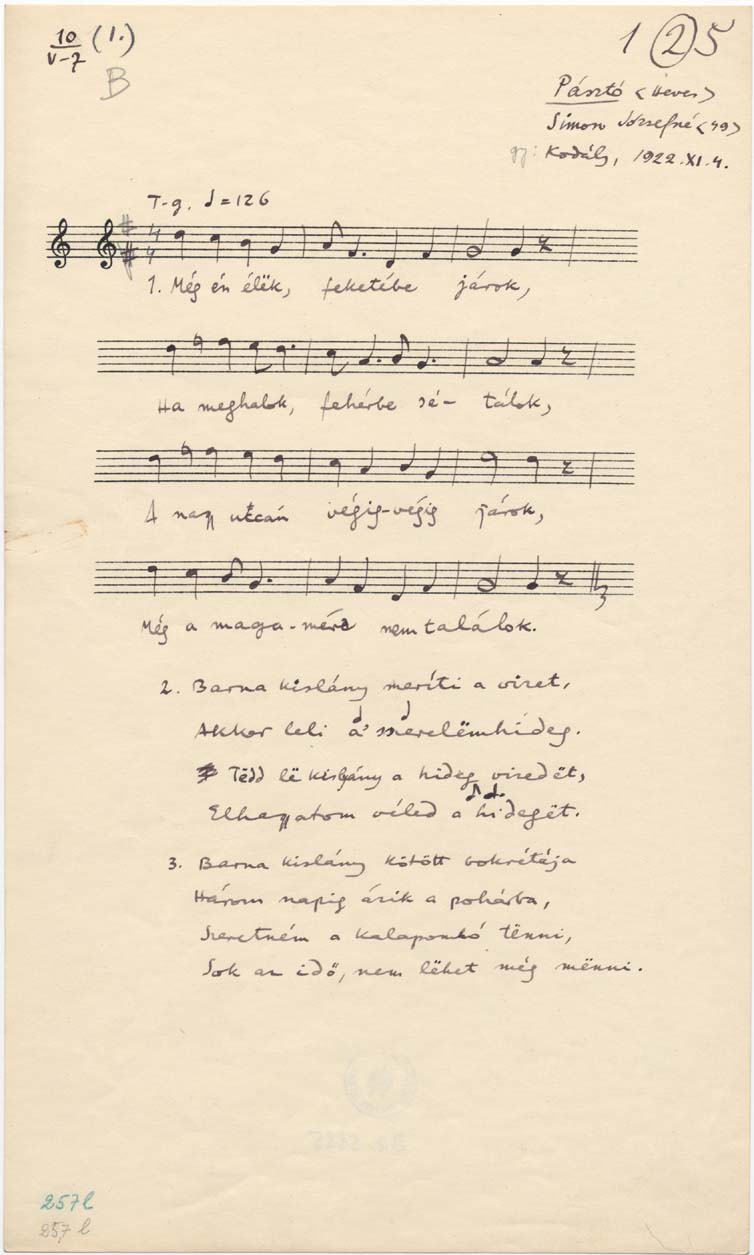 10 (1.)
V-7
B
1 2 5
Pásztó <Heves>
Simon Józsefné <49>
gy: Kodály, 1922.XI.4.
T-g. ♩=126
1. Még én élëk, feketébe járok,
Ha meghalok, fehérbe sé- tálok,
A nagy utcán végig-végig járok,
Még a maga-méré nem találok.
2. Barna kislány meríti a vizet,
Akkor leli a' szerelëmhideg.
Tëdd lë kislány a hideg vizedët,
Elhagyatom véled a hidegët.
3. Barna kislány kötött bokrétája
Három napig ázik a pohárba,
Szeretném a kalapomhó tënni,
Sok az idő, nem lëhet még mënni.
257 l
257 l